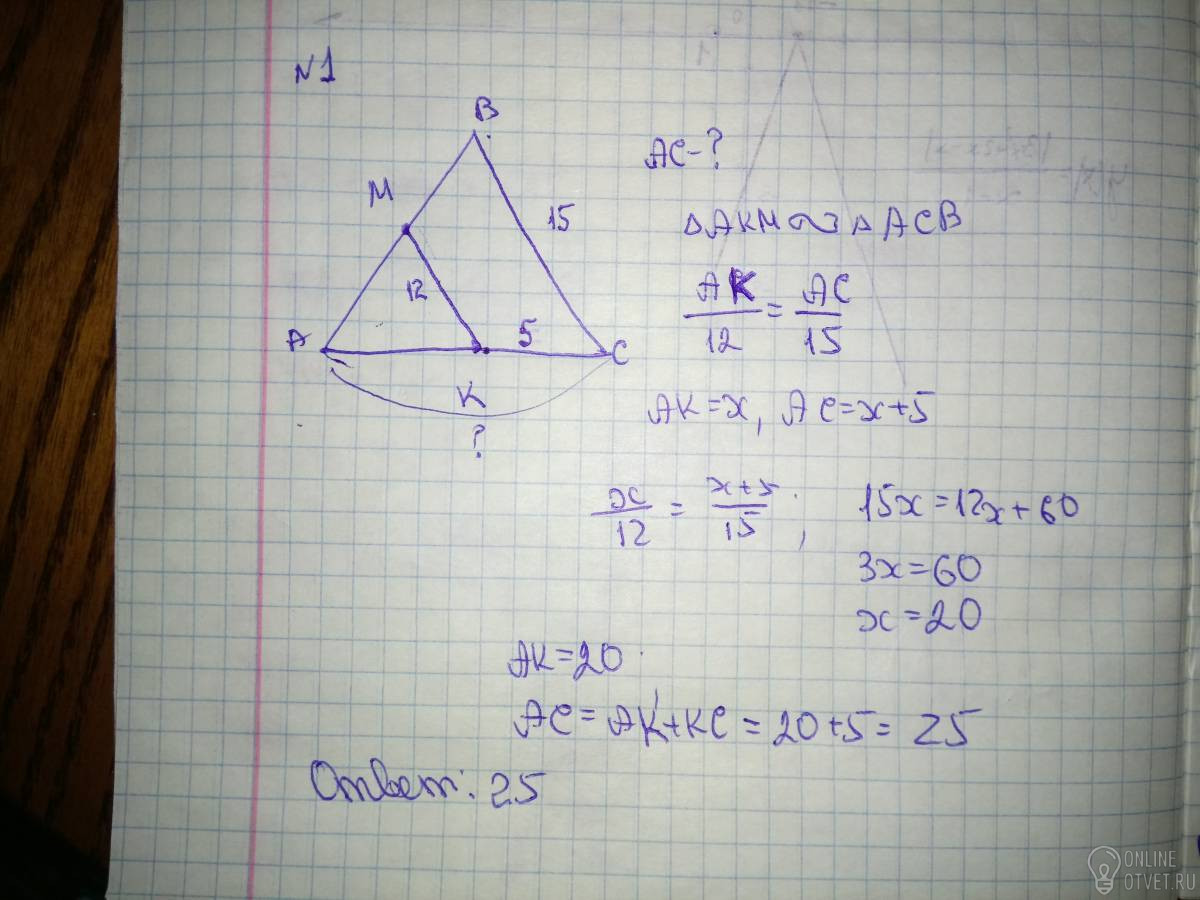 N1
B
M
15
12
A
5
C
K
?
AC-?
△AKM ∾ △ACB
AK/12 = AC/15
AK=x, AC=x+5
x/12 = x+5/15, 15x=12x+60
3x=60
x=20
AK=20
AC=AK+KC=20+5=25
Ответ: 25
ONLINE
OTVET.RU